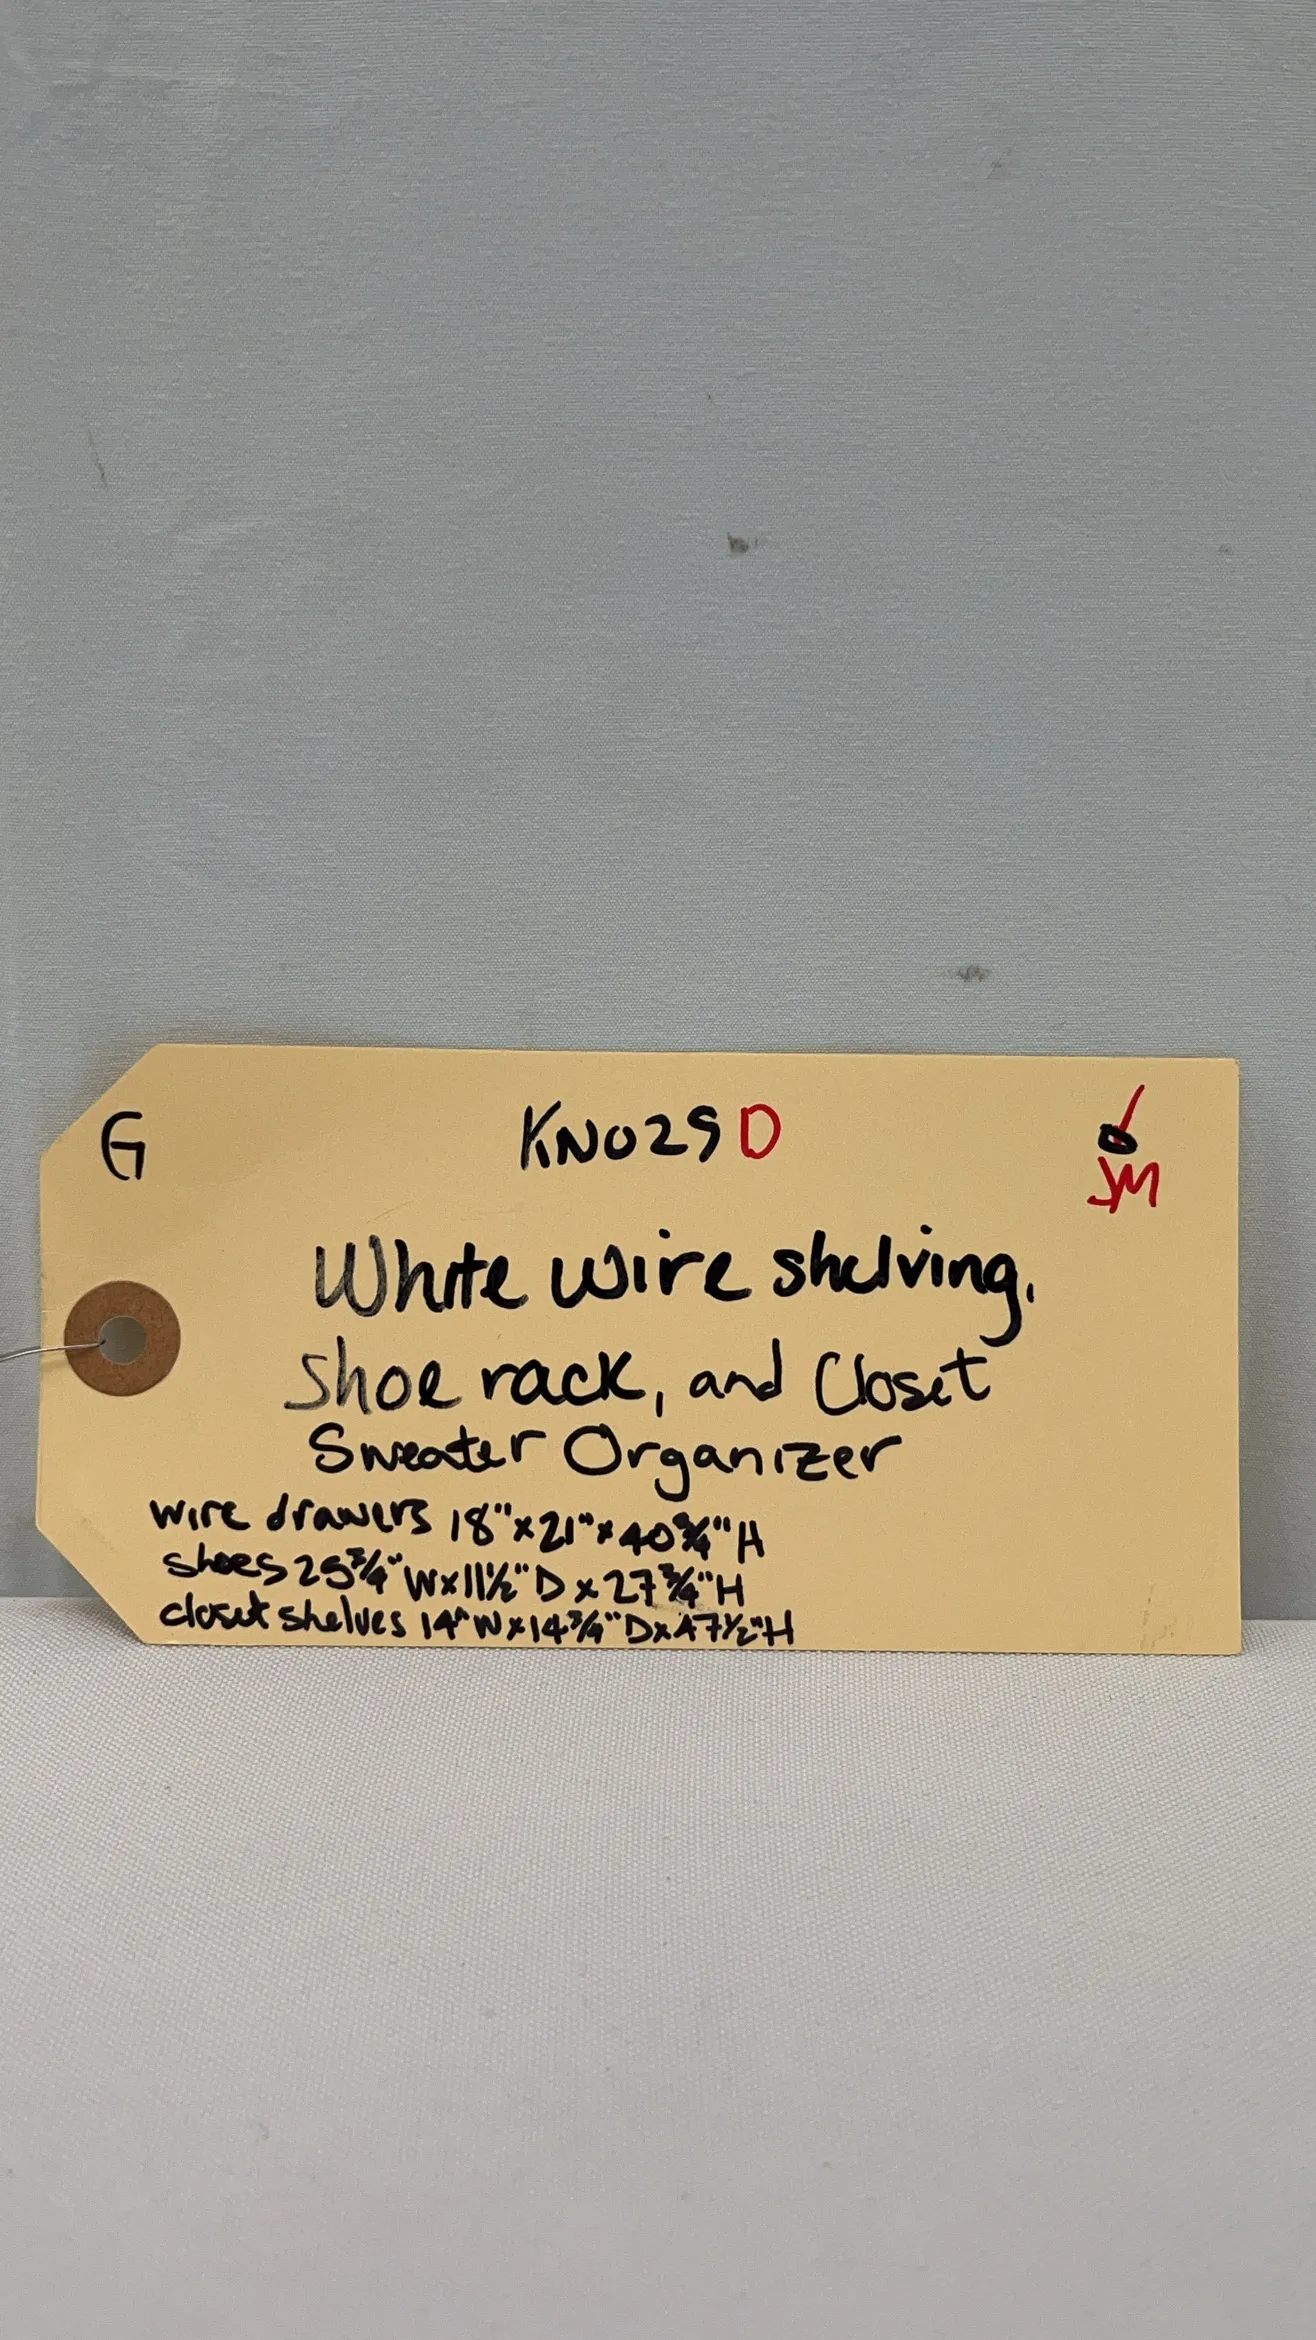 G
KN029 D
JM
White wire shelving,
shoe rack, and Closet
Sweater Organizer
wire drawers 18" x 21" x 40 3/4" H
shoes 25 3/4" W x 11 1/2" D x 27 3/4" H
closet shelves 14" W x 14 3/4" D x 47 1/2" H